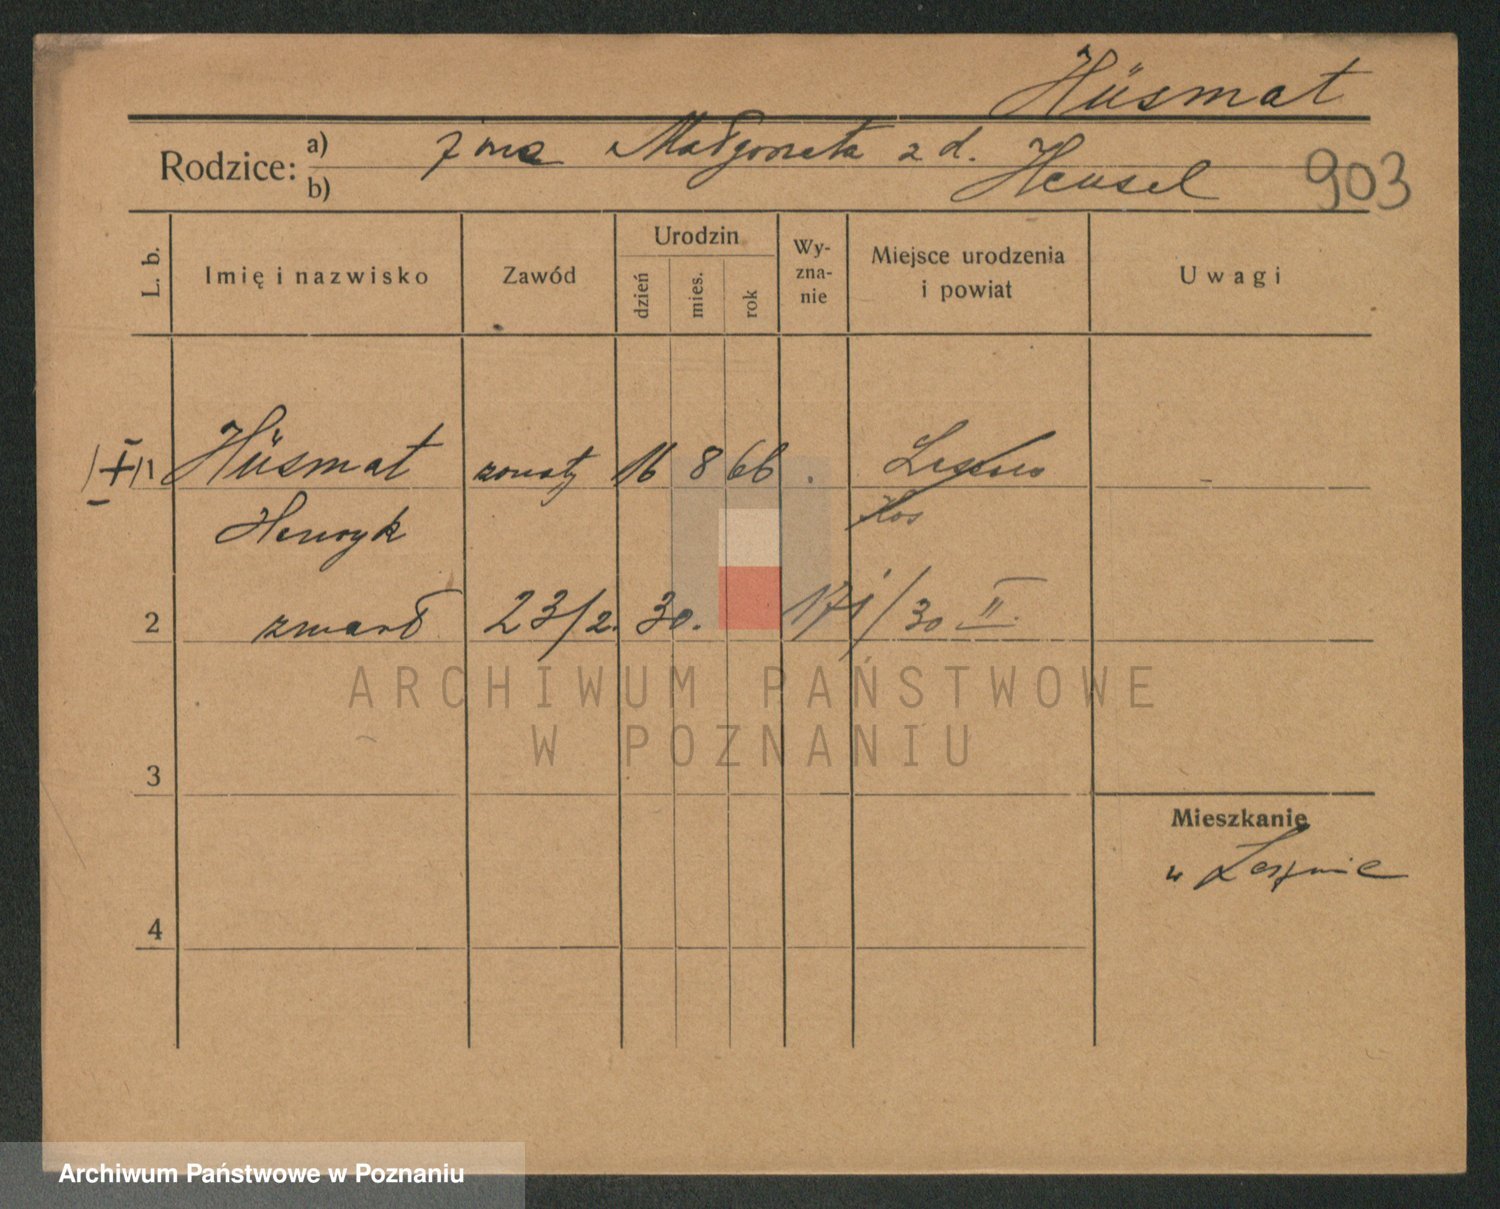 Hüsmat
Rodzice: a) żona Małgorzata z d.
b) Heusel 903
L. b. Imię i nazwisko Zawód Urodzin dzień mies. rok Wy-zna-nie Miejsce urodzenia i powiat Uwagi
1 Hüsmat żonaty 16 8 66 . Leszno
Henryk Kos
2 zmarł 23/2. 30. 171/30 II.
ARCHIWUM PAŃSTWOWE
W POZNANIU
3
Mieszkanie
w Lesznie
4
Archiwum Państwowe w Poznaniu